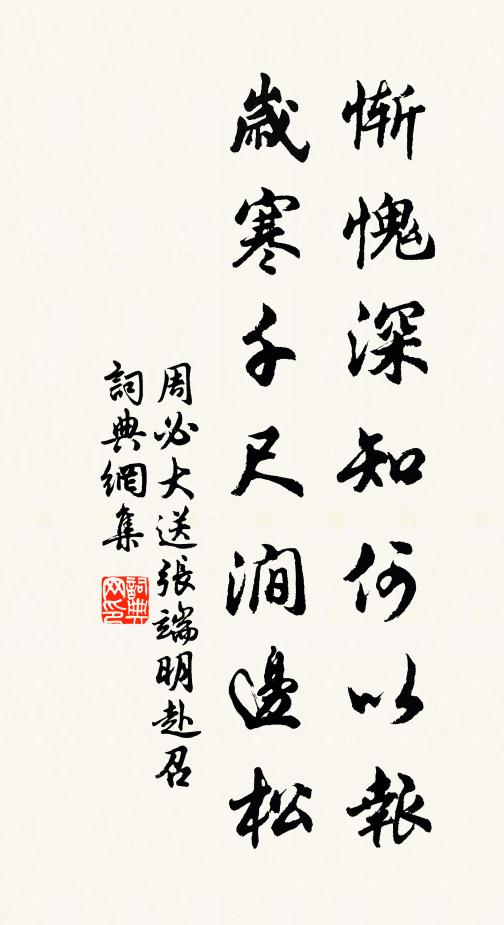 慚愧深知何以報
歲寒千尺澗邊松
周必大送張端明赴召
詞典網集
詞典網印